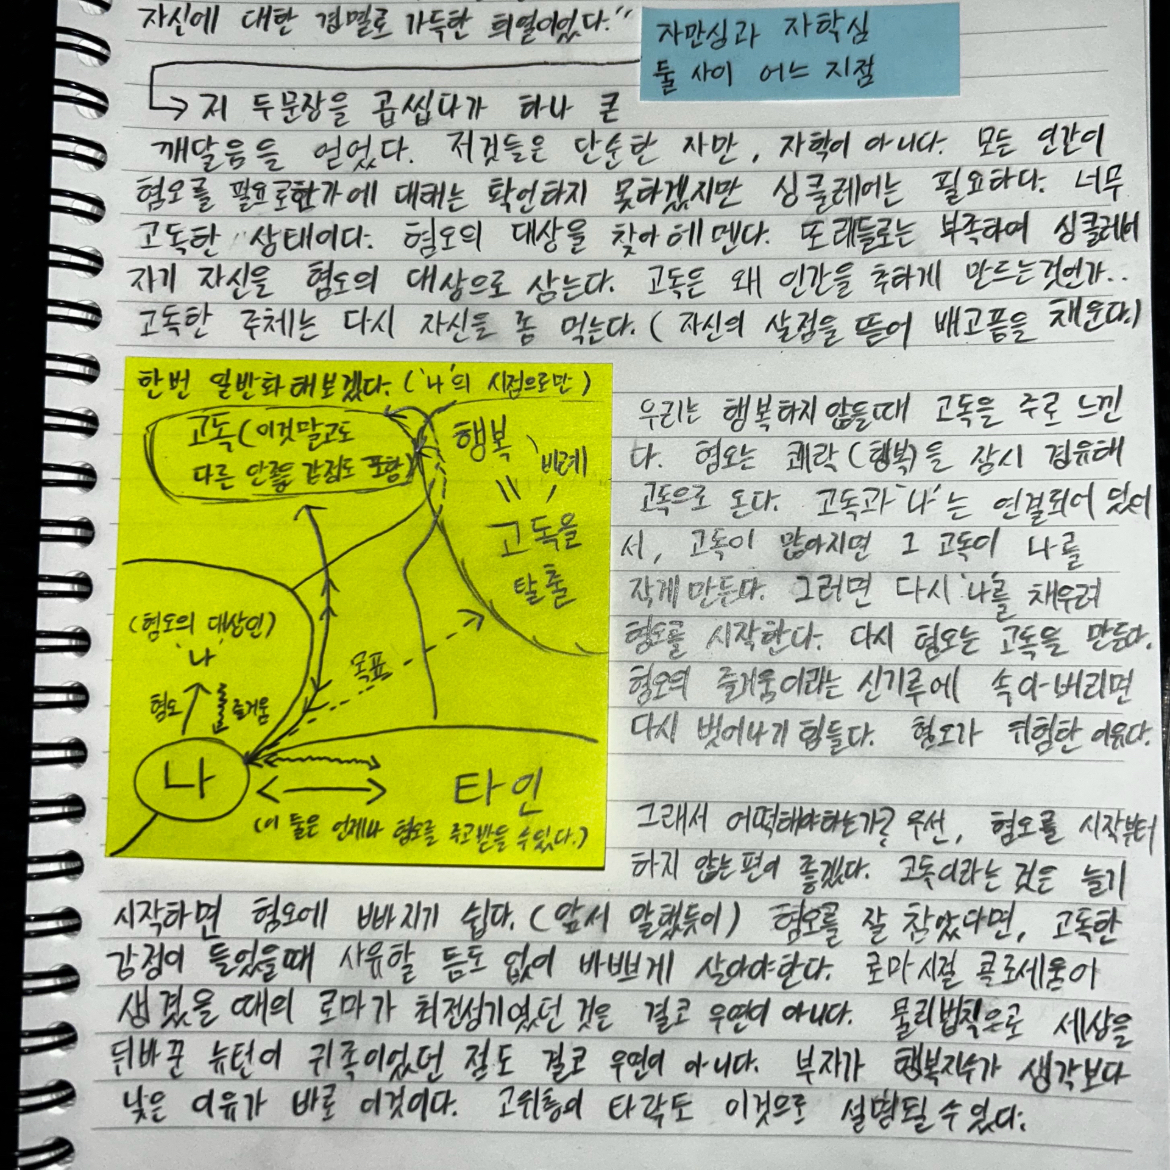 자신에 대한 경멸로 가득한 희열이었다."
자만심과 자학심
둘 사이 어느 지점
저 두문장을 곱씹다가 하나 큰
깨달음을 얻었다. 저것들은 단순한 자만, 자학이 아니다. 모든 인간이
혐오를 필요로한가에 대해는 확언하지 못하겠지만 싱클레어는 필요하다. 너무
고독한 상태이다. 혐오의 대상을 찾아 헤멘다. 또래들로는 부족하여 싱클레어
자기 자신을 혐오의 대상으로 삼는다. 고독은 왜 인간을 추하게 만드는것인가..
고독한 주체는 다시 자신을 좀 먹는다. (자신의 살점을 뜯어 배고픔을 채운다.)
한번 일반화해보겠다. ('나'의 시점으로만)
고독 (이것말고도
다른 안좋은 감정도 포함)
행복
비례
고독을
탈출
(혐오의 대상인)
'나'
혐오
즐거움
목표
나
타인
(이 둘은 언제나 혐오를 주고받을 수있다.)
우리는 행복하지 않을때 고독을 주로 느낀
다. 혐오는 쾌락(행복)을 잠시 경유해
고독으로 온다. 고독과 '나'는 연결되어 있어
서, 고독이 많아지면 그 고독이 나를
작게 만든다. 그러면 다시 '나'를 채우려
혐오를 시작한다. 다시 혐오는 고독을 만든다.
혐오의 즐거움이라는 신기루에 속아버리면
다시 벗어나기 힘들다. 혐오가 위험한 이유다.
그래서 어떡해야하는가? 우선, 혐오를 시작부터
하지 않는편이 좋겠다. 고독이라는 것은 늘기
시작하면 혐오에 빠지기 쉽다. (앞서 말했듯이) 혐오를 잘 참았다면, 고독한
감정이 들었을때 사유할 틈도 없이 바쁘게 살아야한다. 로마시절 콜로세움이
생겼을 때의 로마가 최전성기였던 것은 결코 우연이 아니다. 물리법칙으로 세상을
뒤바꾼 뉴턴이 귀족이었던 점도 결코 우연이 아니다. 부자가 행복지수가 생각보다
낮은 이유가 바로 이것이다. 고위층의 타락도 이것으로 설명될 수 있다.